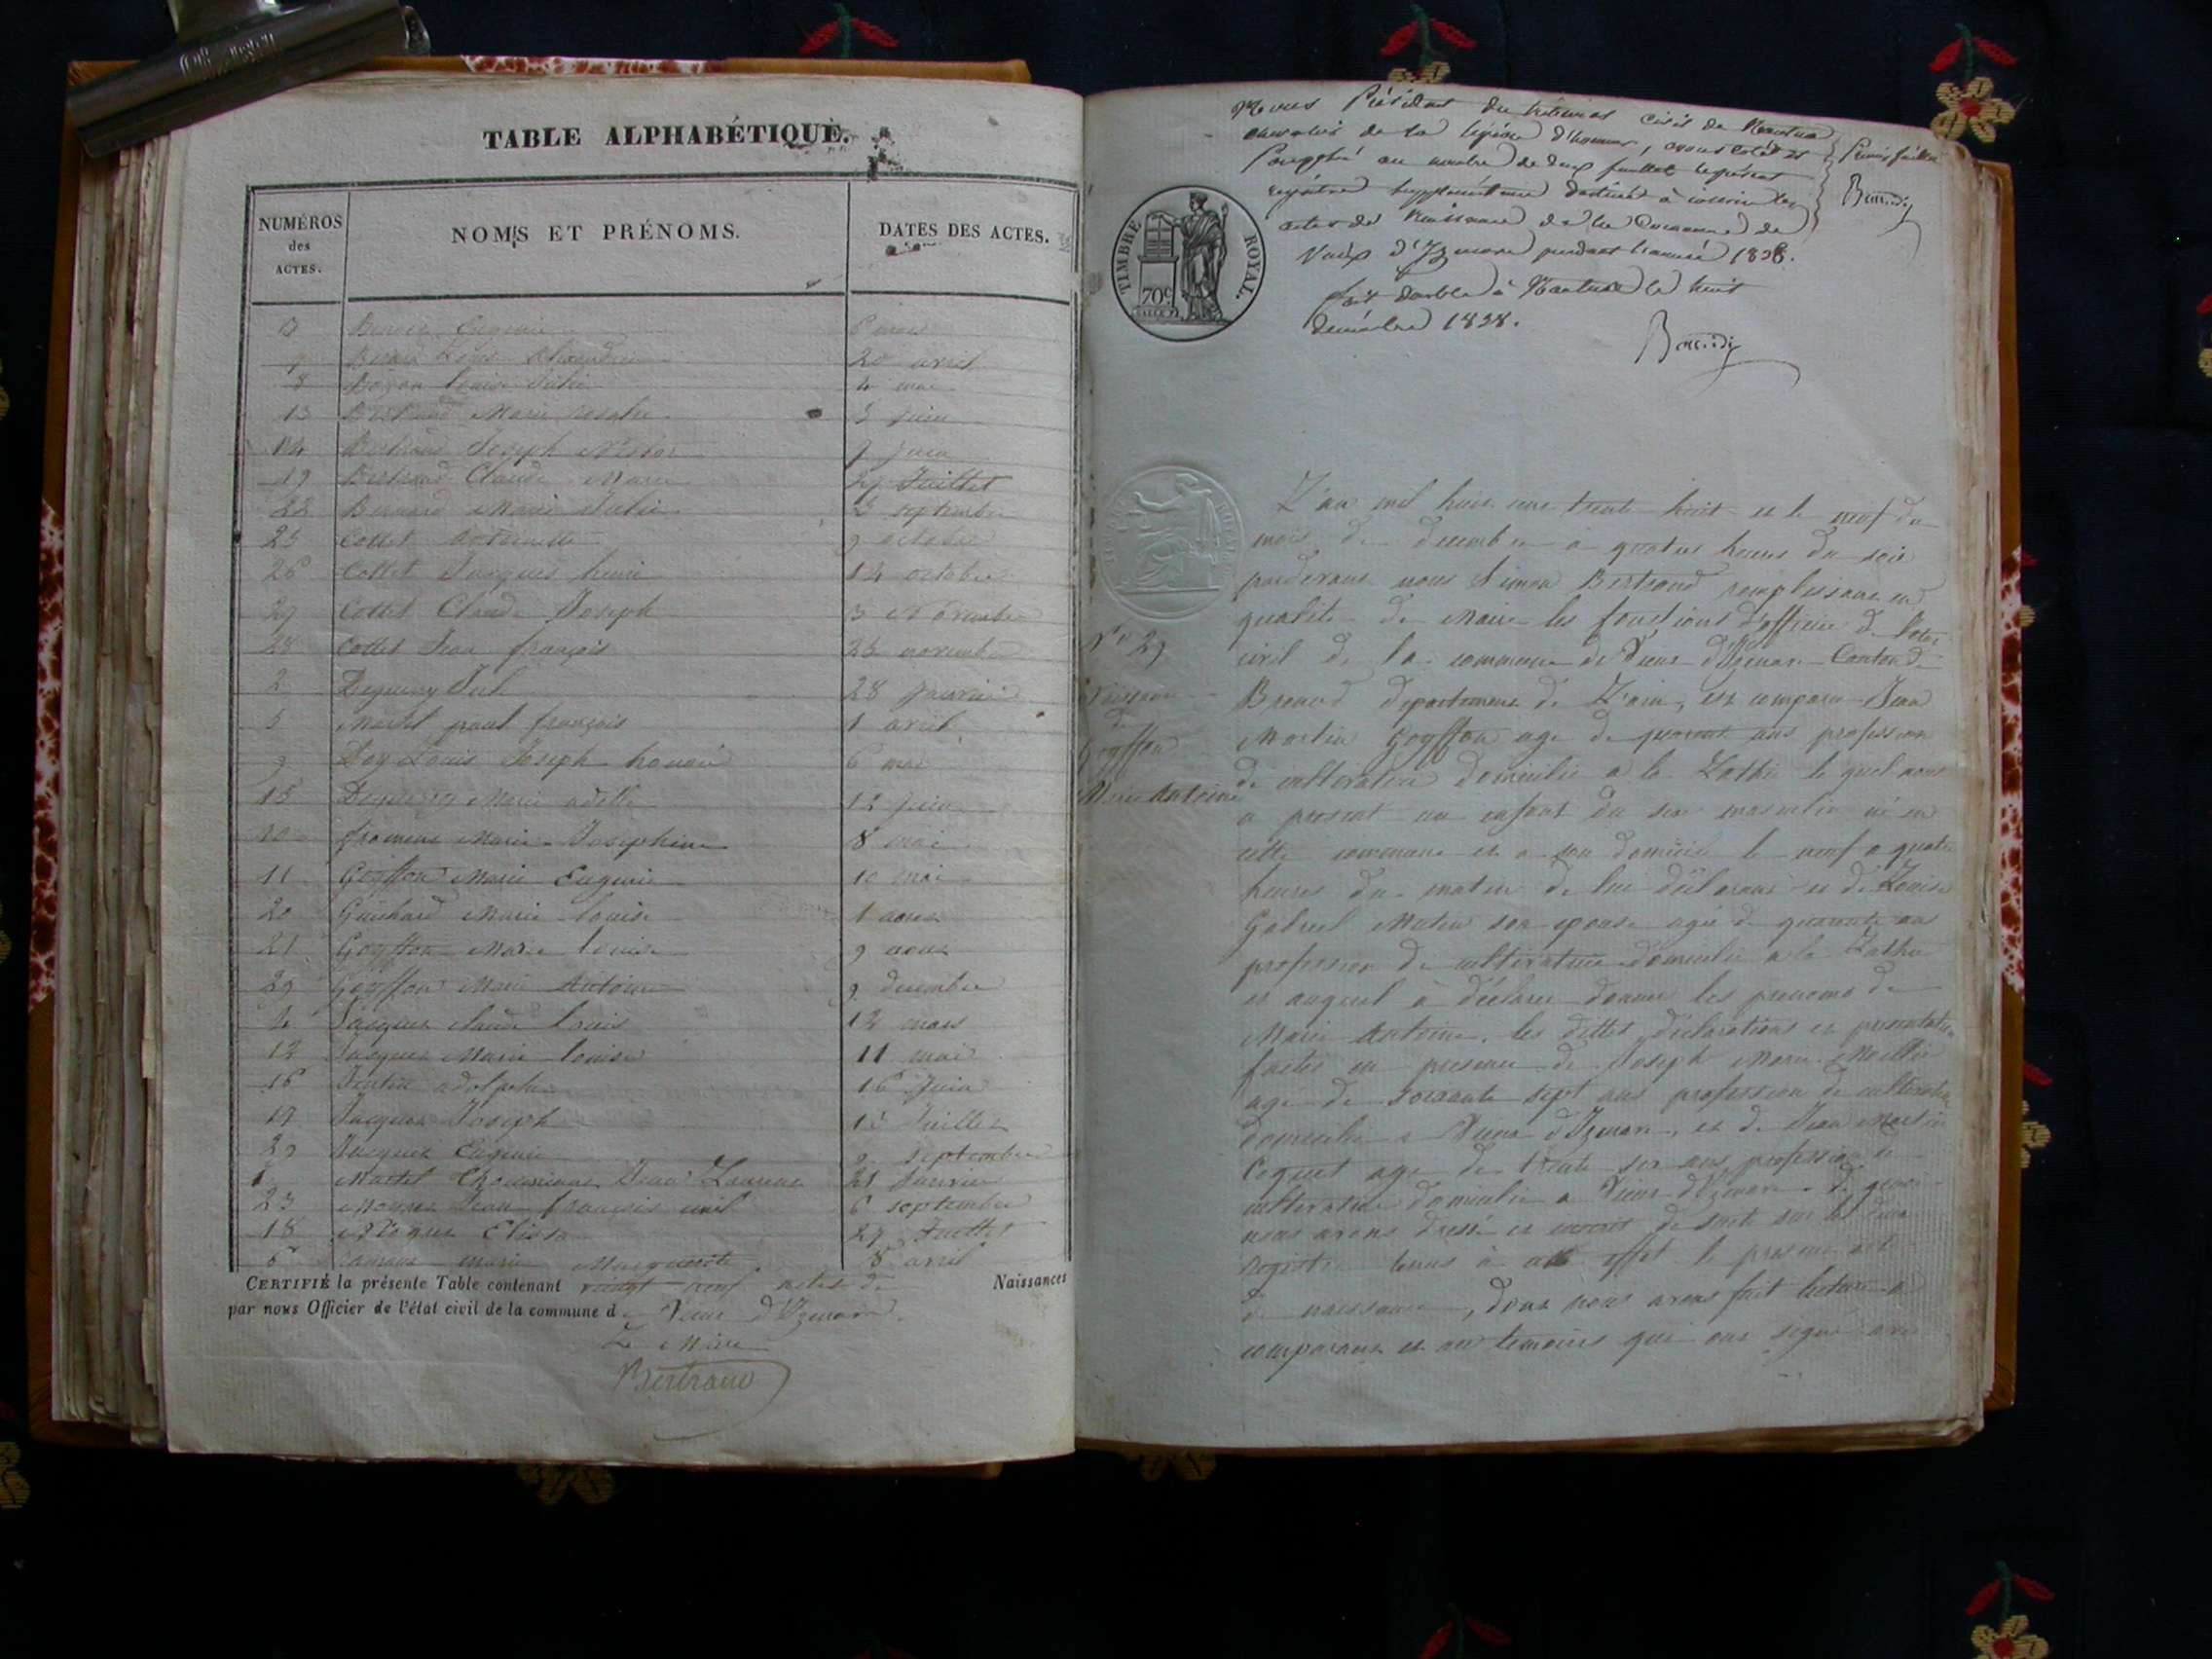 TABLE ALPHABÉTIQUE.
NUMÉROS des ACTES.
NOMS ET PRÉNOMS.
DATES DES ACTES.
Eugenie
9 Louis 20 avril
8 Louise Julie 4 mai
13 Bertrand Marie 5 juin
14 Bertrand Joseph 9 juin
19 Bertrand Claude Marie Juillet
22 Bernard Marie Julie septembre
25 Collet Antoinette 9 octobre
26 Collet Jacques henri 14 octobre
27 Collet Claude Joseph 3 Novembre
28 Collet Jean françois 25 novembre
2 28 Janvier
5 paul françois 1 avril
9 Louis Joseph honoré 6 mai
15 Marie adelle 12 juin
10 froment Marie Josephine 8 mai
11 Goyffon Marie Eugenie 10 mai
20 Guichard Marie Louise 1 aout
21 Goyffon Marie Louise 9 aout
29 Goyffon Marie Antoine 9 decembre
4 Jacques Claude Louis 12 mars
12 Jacques Marie Louise 11 mai
16 adolphe 16 Juin
17 Jacques Joseph 15 Juillet
Eugenie septembre
1 Martel Jean 21 Janvier
23 Jean françois 6 septembre
18 Elisa 29 Juillet
marie Marguerite 8 avril
CERTIFIÉ la présente Table contenant vingt neuf actes de Naissances
par nous Officier de l'état civil de la commune de Vieux d'Izenave.
Le Maire
Bertrand
Nous Président du tribunal civil de Nantua
chevalier de la légion d'honneur, avons coté et
Paraphé au nombre de deux feuillets le présent
registre supplémentaire destiné à inscrire les
actes de Naissance de la Commune de
Vieux d'Izenave pendant l'année 1838.
fait double à Nantua le huit
decembre 1838.
TIMBRE ROYAL.
70c
L'an mil huit cent trente huit et le neuf du
mois de decembre a quatre heures du soir
pardevant nous Simon Bertrand remplissant en
qualité de Maire les fonctions d'officier de l'etat
civil de la commune de Vieux d'Izenave Canton de
Brenod departement de L'ain, est comparu Jean
Martin Goyffon agé de quarante ans profession
de cultivateur domicilié a la lequel nous
a presenté un enfant du sexe masculin né en
cette commune et a son domicile le neuf a quatre
heures du matin de lui déclarant et de Louise
Gabriel son epouse agée de quarante ans
profession de cultivatrice domiciliée a la
et auquel a déclaré donner les prenoms de
Marie Antoine, les dittes déclarations et presentation
faites en presence de Joseph Marie
agé de soixante sept ans profession de cultivateur
domicilié a Vieux d'Izenave, et de Jean Martin
agé de trente six ans profession de
cultivateur domicilié a Vieux d'Izenave. de quoi
nous avons dressé et inscrit de suite sur les deux
registres tenus à cet effet le present acte
de naissance, dont nous avons fait lecture a
comparant et aux temoins qui ont signé avec
No 29
Naissance
de
Goyffon
Marie Antoine